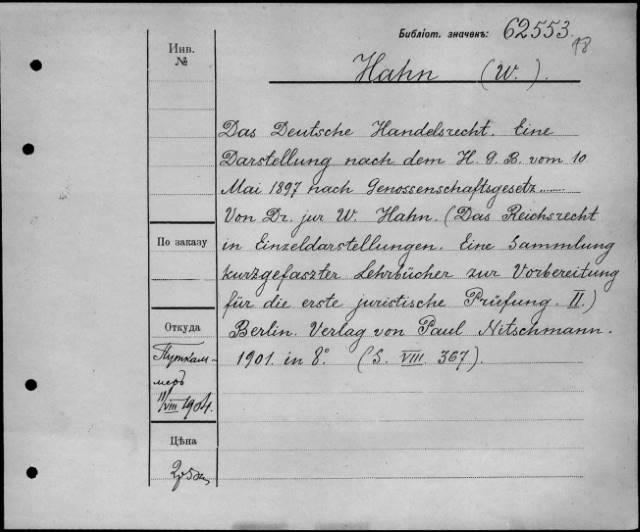 Библіот. значекъ: 62553
18
Инв.
№
Hahn (W.).
Das Deutsche Handelsrecht. Eine
Darstellung nach dem H. G. B. vom 10
Mai 1897 nach Genossenschaftsgesetz......
Von Dr. jur W. Hahn. (Das Reichsrecht
По заказу
in Einzeldarstellungen. Eine Sammlung
kurzgefaszter Lehrbücher zur Vorbereitung
für die erste juristische Prüfung. II.)
Откуда
Berlin. Verlag von Paul Nitschmann.
1901. in 8°. (S. VIII. 367).
Путкам-
меръ
11/VIII 1904.
Цѣна